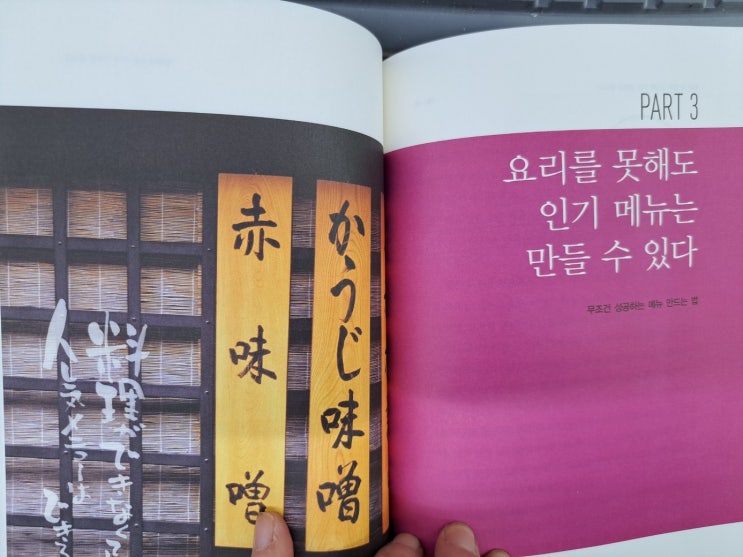 かうじ味噌
赤味噌
料理ができなくて
人気メニューは
できる
PART 3
요리를 못해도
인기 메뉴는
만들 수 있다
무조건 성공하는 메뉴 만드는 법